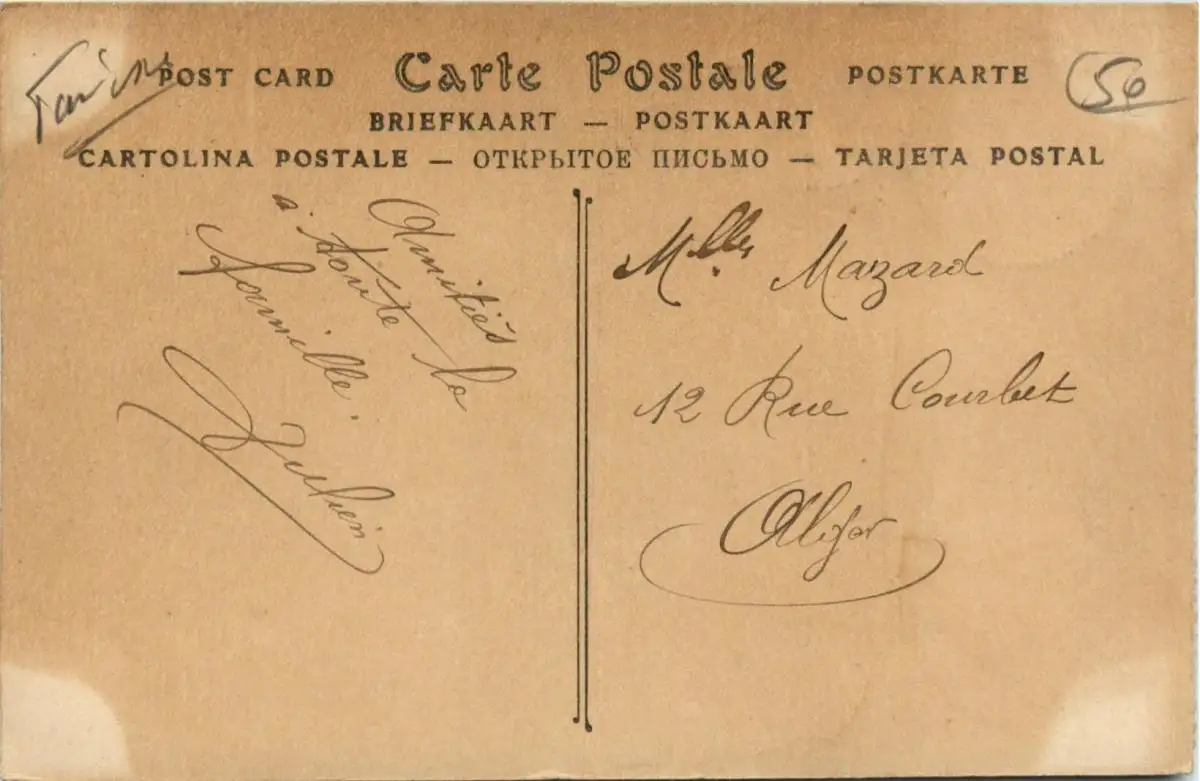 POST CARD Carte Postale POSTKARTE 50
BRIEFKAART — POSTKAART
CARTOLINA POSTALE — ОТКРЫТОЕ ПИСЬМО — TARJETA POSTAL
Amitiés
a toute la
famille.
Julien
Mlles Mazard
12 Rue Courbet